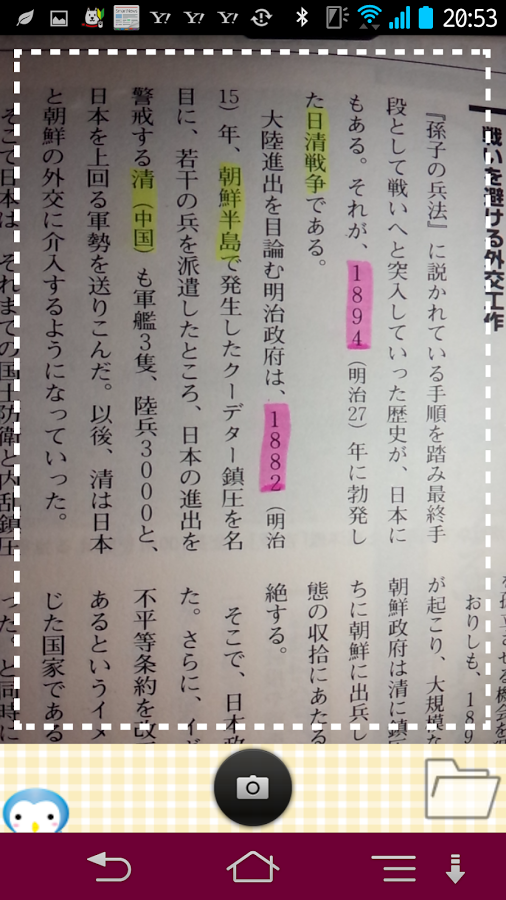 20:53
戦いを避ける外交工作
『孫子の兵法』に説かれている手順を踏み最終手
段として戦いへと突入していった歴史が、日本に
もある。それが、1894（明治27）年に勃発し
た日清戦争である。
大陸進出を目論む明治政府は、1882（明治
15）年、朝鮮半島で発生したクーデター鎮圧を名
目に、若干の兵を派遣したところ、日本の進出を
警戒する清（中国）も軍艦3隻、陸兵3000と、
日本を上回る軍勢を送りこんだ。以後、清は日本
と朝鮮の外交に介入するようになっていった。
そこで日本は、それまでの国土防衛と内乱鎮圧
させる機会を
おりしも、189
が起こり、大規模な
朝鮮政府は清に鎮
ちに朝鮮に出兵し
態の収拾にあたる
絶する。
そこで、日本政
た。さらに、イ
不平等条約を改
あるというイメ
じた国家である
った。と同時に